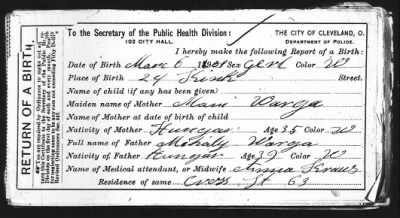 To the Secretary of the Public Health Division:
102 CITY HALL.
THE CITY OF CLEVELAND, O.
DEPARTMENT OF POLICE.
I hereby make the following Report of a Birth:
Date of Birth Marc 6 1901 Sex Gerl Color W
Place of Birth 24 Street.
Name of child (if any has been given)
Maiden name of Mother Mari Varga
Name of Mother at date of birth of child
Nativity of Mother Hungar Age 35 Color W
Full name of Father Mihaly Varga
Nativity of Father Hungar Age 39 Color W
Name of Medical attendant, or Midwife Anna
Residence of same St 63
RETURN OF A BIRTH